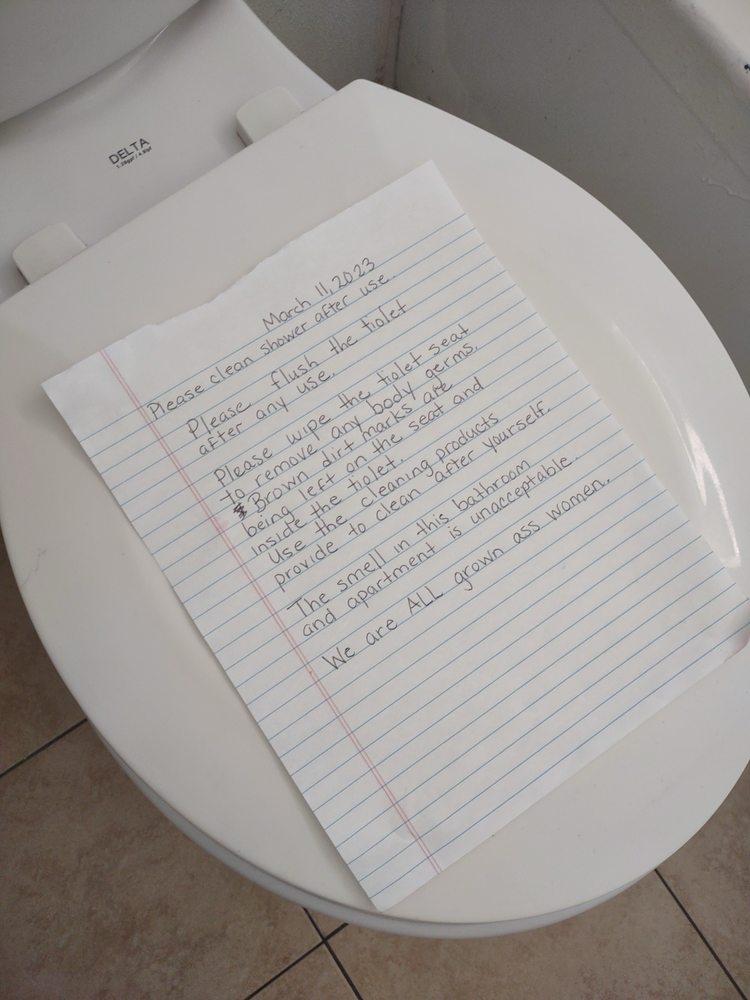 DELTA
1.28gpf / 4.8lpf
March 11, 2023
Please clean shower after use.
Please flush the tiolet
after any use.
Please wipe the tiolet seat
to remove any body germs.
Brown dirt marks are
being left on the seat and
inside the tiolet.
Use the cleaning products
provide to clean after yourself.
The smell in this bathroom
and apartment is unacceptable.
We are ALL grown ass women.